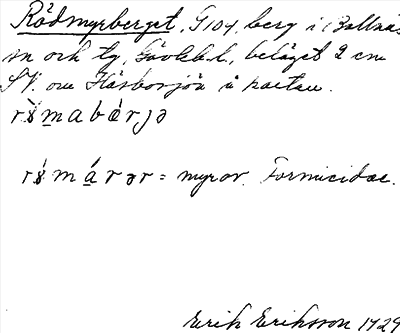 Rödmyrberget, G104, berg i Bollnäs
sn och tg, Gävleb. l., beläget 2 cm
SV. om Häsbosjön å kartan.
rɤ̀mabǽrjə
rɤ́márər = myror. Formicidae.
Erik Eriksson 1929